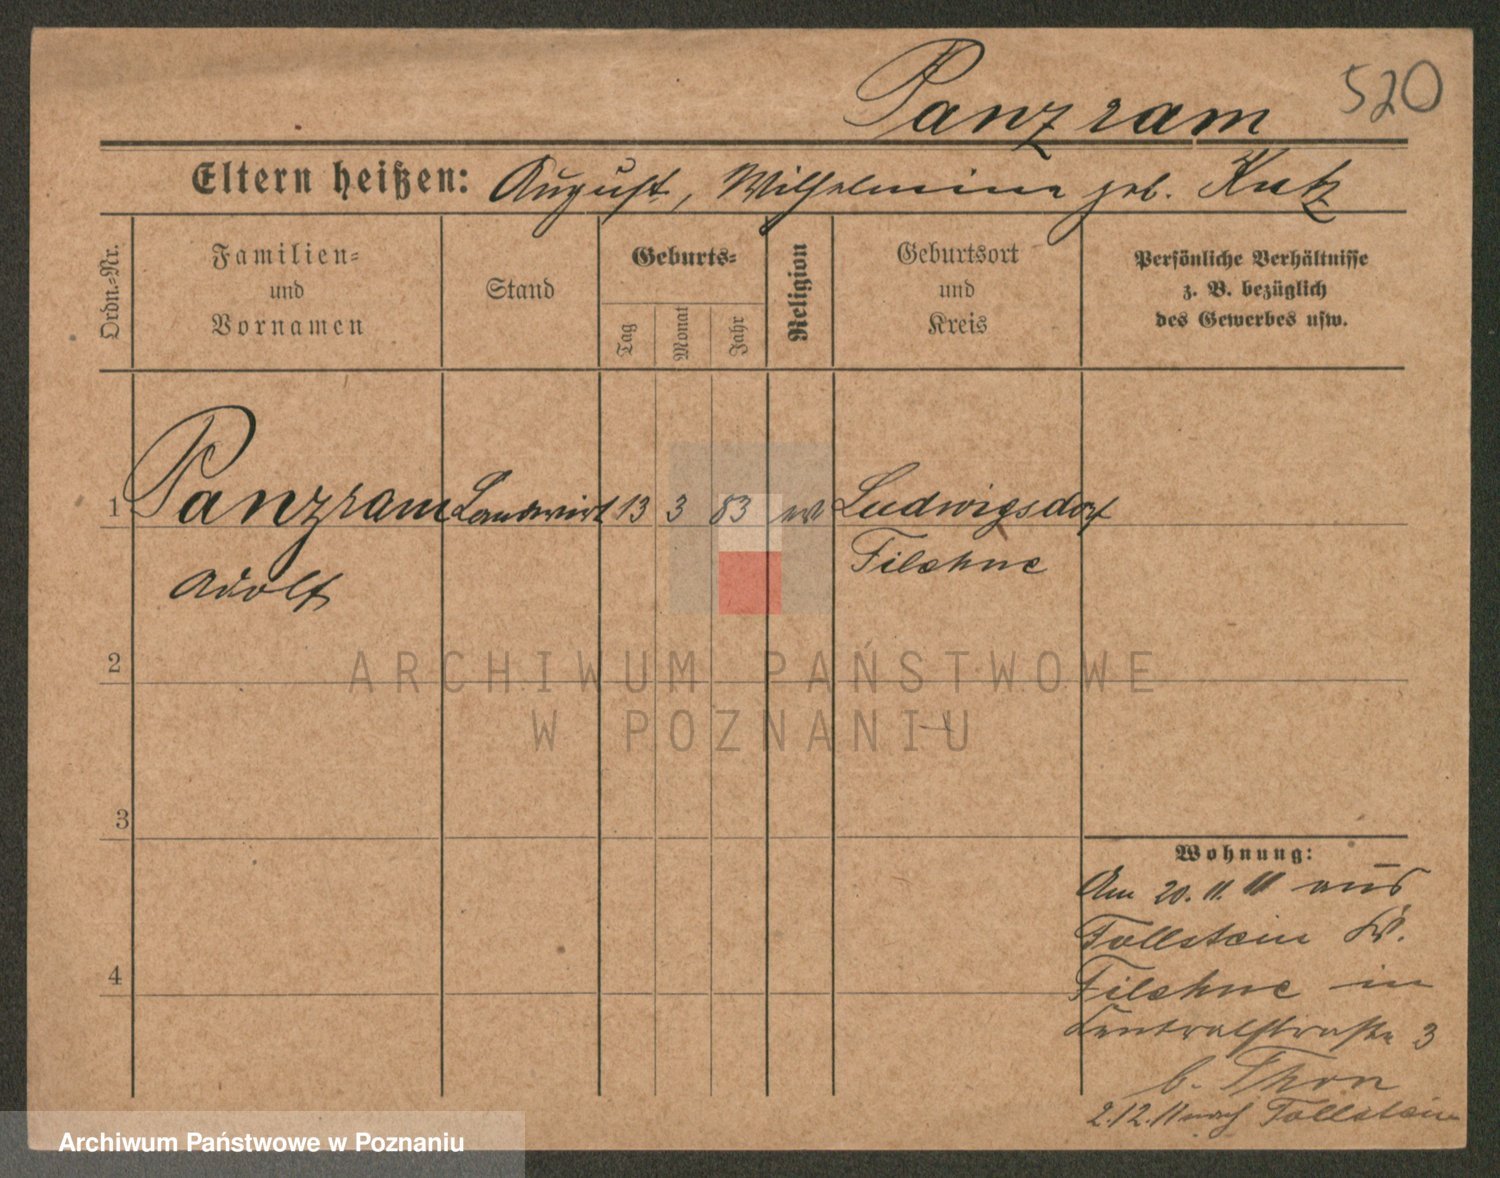 Panzram 520
Eltern heißen: August, Wilhelmine geb.
Ordn.-Nr.
Familien-
und
Vornamen
Stand
Geburts-
Tag
Monat
Jahr
Religion
Geburtsort
und
Kreis
Persönliche Verhältnisse
z. B. bezüglich
des Gewerbes usw.
1 Panzram Landwirt 13 3 83 ev Ludwigsdorf
Adolf Filehne
2
ARCHIWUM PAŃSTWOWE
W POZNANIU
3
4
Wohnung:
Am 20. 11. 11 aus
Follstein Kr.
Filehne in
Centralstraße 3
b. Thon
2.12.11 nach Follstein
Archiwum Państwowe w Poznaniu